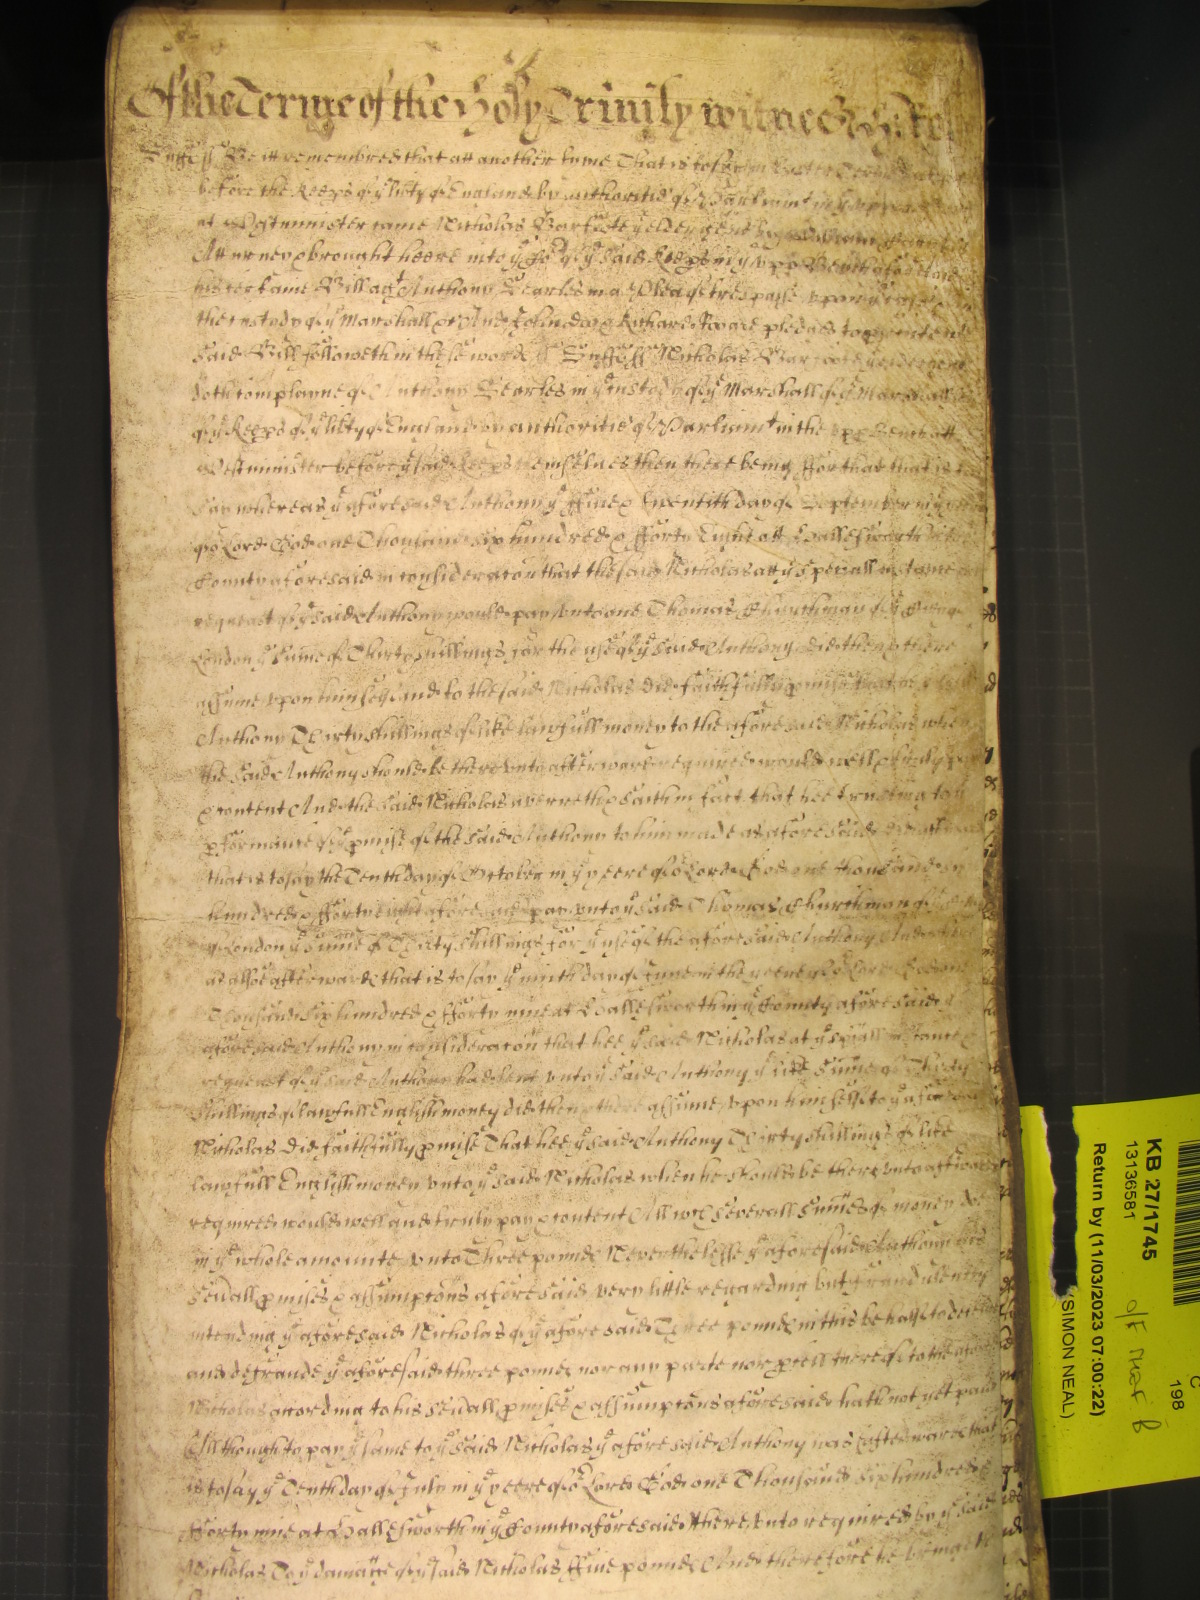 Of the Terme of the Holy Trinity witnes
Suff ss Be itt remembred that att another tyme That is to say in Easter Terme
before the Keeps of y liberty of England by authoritie of Parliamt in y upper
at Westminster came Nicholas Barfoote y elder gent by
Atturney & brought heere into y Cort of y said Keeps in y upp Bench aforesaid
his certaine Bill agt Anthony Searles in a Plea of trespasse upon y case
the custody of y Marshall &c And John doe & Richard Roe are pledges to prosecute
said Bill followeth in these words ss Suff ss Nicholas Barfoote y elder gent
doth complayne of Anthony Searles in y custody of y Marshall of y Marshallsea
of y Keeps of y liberty of England by authoritie of Parliamt in the upp Bench att
Westminister before y said Keeps themselves then there being ffor that that is to
say whereas y aforesaid Anthony y ffive & twentith day of September in y
of or Lord God one Thousand six hundred & fforty Eight att Hallesworth in
County aforesaid in consideracon that the said Nicholas att y speciall instance
request of y said Anthony would pay unto one Thomas Churchman of
London y sume of Thirty shillings for the use of y said Anthony did then & there
assume upon himself and to the said Nicholas did faithfully pmise that he y said
Anthony Thirty shillings of like lawfull money to the aforesaid Nicholas when
the said Anthony should be thereunto afterwards required would well & truly pay
& content And the said Nicholas averreth & saith in fact that hee trusting to y
pformance of y pmise of the said Anthony to him made as aforesaid
that is to say the Tenth day of October in y yeere of or Lord God one thousand six
hundred & fforty eight aforesaid pay unto y said Thomas Churchman
of London y sume of Thirty shillings for y use of the aforesaid Anthony And
as alsoe afterwards that is to say y ninth day of June in the yeere of or Lord God one
Thousand six hundred & fforty nine at Hallesworth in y County aforesaid y
aforesaid Anthony in consideracon that hee y said Nicholas at y spiall instance &
request of y said Anthony had lent unto y said Anthony y like sume of Thirty
shillings of lawfull English money did then & there assume upon himselfe & to y aforesaid
Nicholas did faithfully pmise That hee y said Anthony Thirty shillings of like
lawfull English money unto y said Nicholas when he should be thereunto afterwards
required would well and truly pay & content All wch severall sumes of money doe
in y whole amounte unto Three pounds Neverthelesse y aforesaid Anthony his
sevall pmises & assumptons aforesaid very little regarding but fraudulently
intending y aforesaid Nicholas of y aforesaid Three pounds in this behalfe to deceive
and defraude y aforesaid three pounds nor any parte nor pcell thereof to the aforesaid
Nicholas according to his sevall pmises & assumptons aforesaid hath not yet paid
Allthough to pay y same to y said Nicholas y aforesaid Anthony was afterwards that
is to say y Tenth day of July in y yeere of or Lord God one Thousand six hundred &
fforty nine at Hallesworth in y County aforesaid thereunto required by y said
Nicholas To y damage of y said Nicholas ffive pounds And therefore he bringeth
KB 27/1745
13136581
Return by (11/03/2023 07:00:22)
(SIMON NEAL)
198